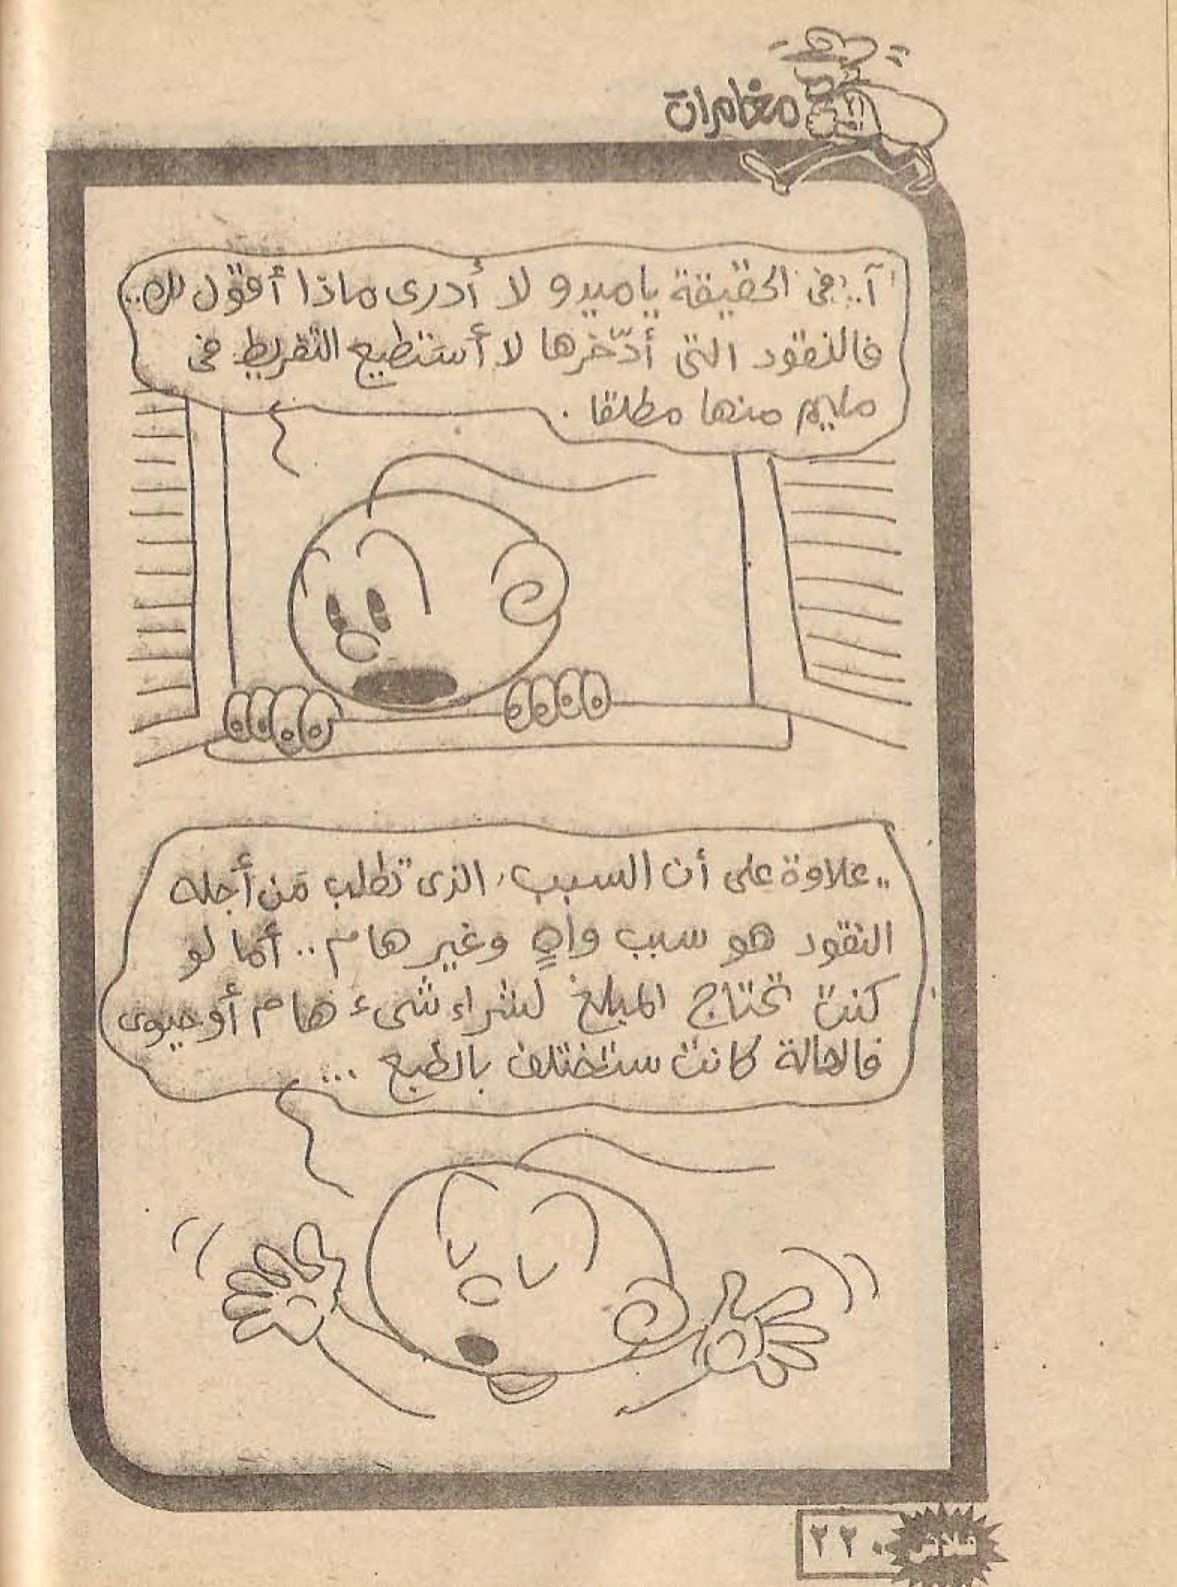 مغامرات
آ.. فى الحقيقة ياميدو لا أدرى ماذا أقول لك..
فالنقود التى أدّخرها لا أستطيع التفريط فى
مليم منها مطلقًا .
.. علاوة على أن السبب الذى تطلب من أجله
النقود هو سبب واهٍ وغير هام .. أما لو
كنت تحتاج المبلغ لشراء شىء هام أو حيوى
فالحالة كانت ستختلف بالطبع ...
فلاش
٢٢٠